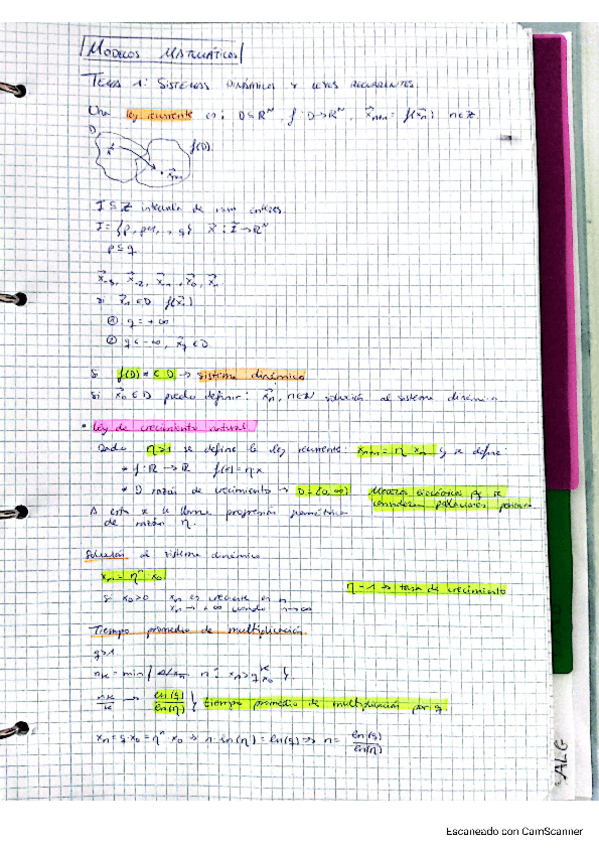 MODELOS MATEMÁTICOS
TEMA 1: SISTEMAS DINÁMICOS Y LEYES RECURRENTES.
Una ley recurrente es: D⊆ℝᴺ, f: D→ℝᴺ, x⃗ₙ₊₁ = f(x⃗ₙ) n∈ℤ.
D f(D)
x⃗ x⃗ₙ₊₁
I ⊆ ℤ intervalo de num
I = {p, p+1, , q} x⃗: I→ℝᴺ
p≤q
si x⃗ₙ∈D f(x⃗ₙ)
① q = +∞
② x⃗q ∉ D
Si f(D) ⊂ D → sistema dinámico
Si x⃗₀∈D puedo definir: x⃗ₙ, n∈ℕ solución al sistema dinámico
• Ley de crecimiento natural
Dado η>1 se define la ley recurrente: xₙ₊₁ = η xₙ y se define:
* f: ℝ→ℝ f(x)=ηx
* D razón de crecimiento → D=(0,∞) consideren poblaciones
A esta x se llama progresión geométrica
de razón η.
Solución al sistema dinámico
xₙ = ηⁿ x₀
η-1 → tasa de crecimiento
si x₀>0 xₙ es creciente en n
xₙ→+∞ cuando n→∞
Tiempo promedio de multiplicación
q>1
nₖ = min{ n: xₙ>qᵏx₀ }.
nₖ/k → ln(q)/ln(η) } tiempo promedio de multiplicación por q
xₙ=q·x₀=ηⁿ·x₀ ⇒ n·ln(η)=ln(q) ⇒ n= ln(q)/ln(η)
ALG
Escaneado con CamScanner